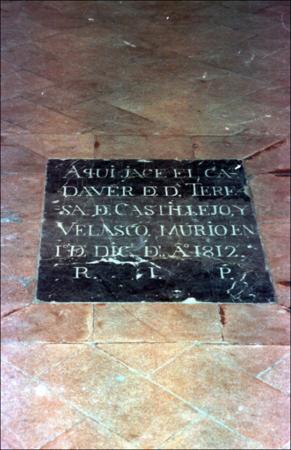 AQUI JACE EL CA-
DAVER D. D. TERE-
SA D. CASTILLEJO, Y
VELASCO, MURIO EN
1 D. DIC. D. Aº. 1812.
R. I. P.